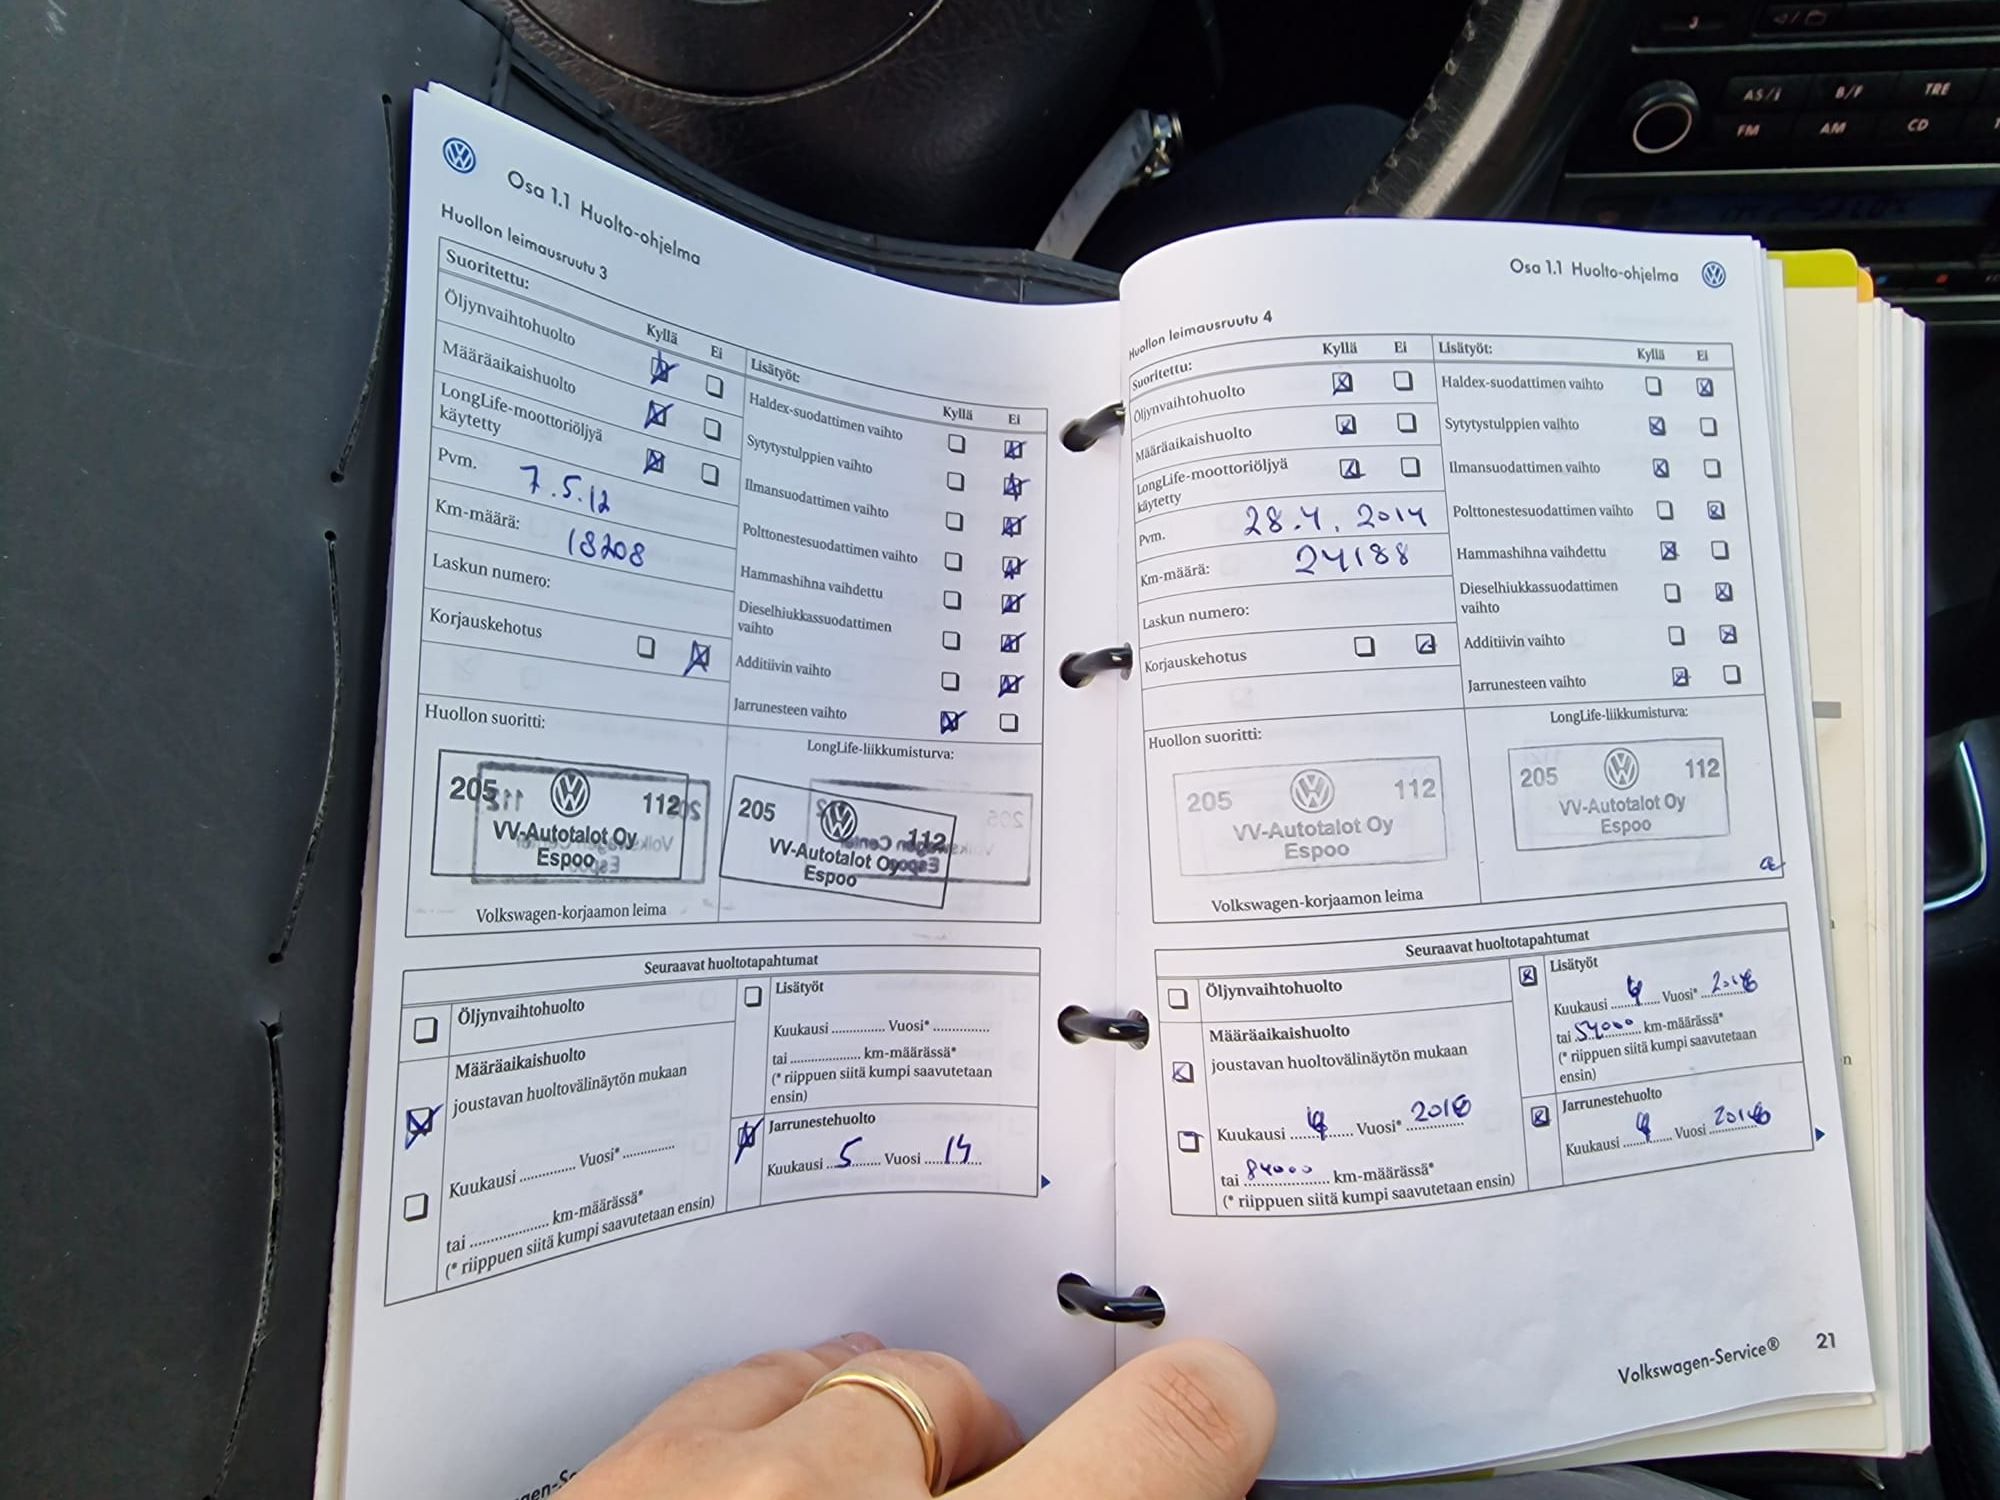 Osa 1.1 Huolto-ohjelma
Huollon leimausruutu 3
Suoritettu:
Kyllä Ei
Öljynvaihtohuolto
Määräaikaishuolto
LongLife-moottoriöljyä
käytetty
Pvm. 7.5.12
Km-määrä: 18208
Laskun numero:
Korjauskehotus
Lisätyöt:
Kyllä Ei
Haldex-suodattimen vaihto
Sytytystulppien vaihto
Ilmansuodattimen vaihto
Polttonestesuodattimen vaihto
Hammashihna vaihdettu
Dieselhiukkassuodattimen
vaihto
Additiivin vaihto
Jarrunesteen vaihto
Huollon suoritti:
205 112
VV-Autotalot Oy
Espoo
Volkswagen-korjaamon leima
LongLife-liikkumisturva:
205 112
VV-Autotalot Oy
Espoo
Seuraavat huoltotapahtumat
Öljynvaihtohuolto
Määräaikaishuolto
joustavan huoltovälinäytön mukaan
Kuukausi ............ Vuosi* ............
tai ................. km-määrässä*
(* riippuen siitä kumpi saavutetaan ensin)
Lisätyöt
Kuukausi ............ Vuosi* ............
tai ................. km-määrässä*
(* riippuen siitä kumpi saavutetaan
ensin)
Jarrunestehuolto
Kuukausi 5 Vuosi 14
Osa 1.1 Huolto-ohjelma
Huollon leimausruutu 4
Suoritettu:
Kyllä Ei
Öljynvaihtohuolto
Määräaikaishuolto
LongLife-moottoriöljyä
käytetty
Pvm. 28.4.2014
Km-määrä: 24188
Laskun numero:
Korjauskehotus
Lisätyöt:
Kyllä Ei
Haldex-suodattimen vaihto
Sytytystulppien vaihto
Ilmansuodattimen vaihto
Polttonestesuodattimen vaihto
Hammashihna vaihdettu
Dieselhiukkassuodattimen
vaihto
Additiivin vaihto
Jarrunesteen vaihto
Huollon suoritti:
205 112
VV-Autotalot Oy
Espoo
Volkswagen-korjaamon leima
LongLife-liikkumisturva:
205 112
VV-Autotalot Oy
Espoo
Seuraavat huoltotapahtumat
Öljynvaihtohuolto
Määräaikaishuolto
joustavan huoltovälinäytön mukaan
Kuukausi 4 Vuosi* 2016
tai 84000 km-määrässä*
(* riippuen siitä kumpi saavutetaan ensin)
Lisätyöt
Kuukausi 4 Vuosi* 2016
tai 54000 km-määrässä*
(* riippuen siitä kumpi saavutetaan
ensin)
Jarrunestehuolto
Kuukausi 4 Vuosi 2016
Volkswagen-Service® 21
3
AS/i B/F TRE
FM AM CD